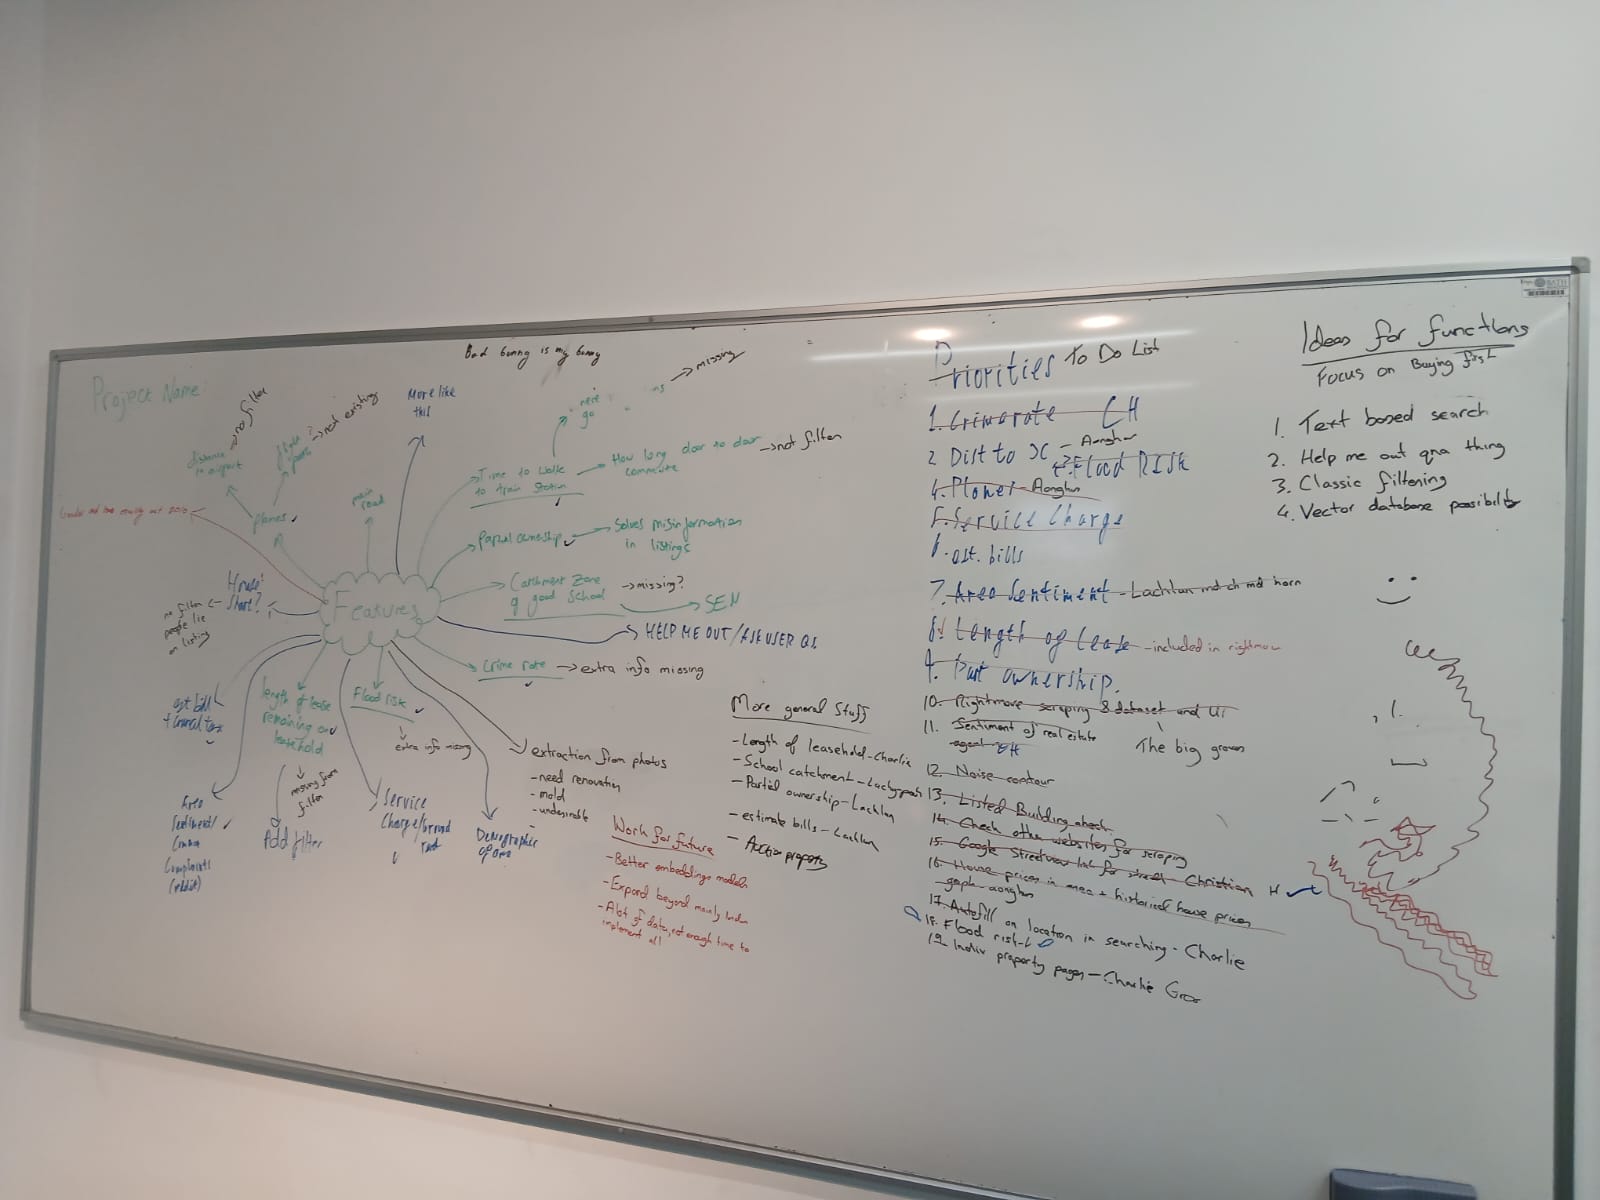 Bad bunny is my bunny
Project Name:
no filter
distance
to airport
not existing
planes
More like
this
main
road
go
missing
Time to walk
to train station
How long door to door
commute
not filter
Partial ownership
Solves misinformation
in listings
Catchment Zone
of good school
missing?
SEN
HELP ME OUT / ASK USER QS
Crime rate
extra info missing
Features
House
no filter
people lie
on listing
est bill
+ council tax
length of lease
remaining on
leasehold
missing from
filter
Add filter
Flood risk
extra info missing
Area
Sentiment/
Common
Complaints
(reddit)
Service
Charge/ground
rent
Demographics
of area
extraction from photos
- need renovation
- mold
- undesirable
-
Work for future
- Better embeddings models
- Expand beyond mainly london
- A lot of data, not enough time to
implement all
More general Stuff
- Length of leasehold - Charlie
- School catchment - Lachy
- Partial ownership - Lachlan
- estimate bills - Lachlan
- Auction property
Priorities To Do List
1. Crimerate CH
2 Dist to X - Aonghus
Flood RISK
4. Planes - Aonghus
5. Service Charge
6. est. bills
7. Area Sentiment - Lachlan
8. Length of lease - included in rightmove
9. Part ownership.
10. Rightmove scraping & dataset and UI
11. Sentiment of real estate
agent CH
The big green
12. Noise contour
13. Listed Building check
14. Check other websites for scraping
15. Google Streetview link for street - Christian H
16. House prices in area + historical house prices
graph - aonghus
17. Autofill on location in searching - Charlie
18. Flood risk - L
19. Indiv property pages - Charlie
Ideas for functions
Focus on Buying first
1. Text based search
2. Help me out qna thing
3. Classic filtering
4. Vector database possibility
BATH